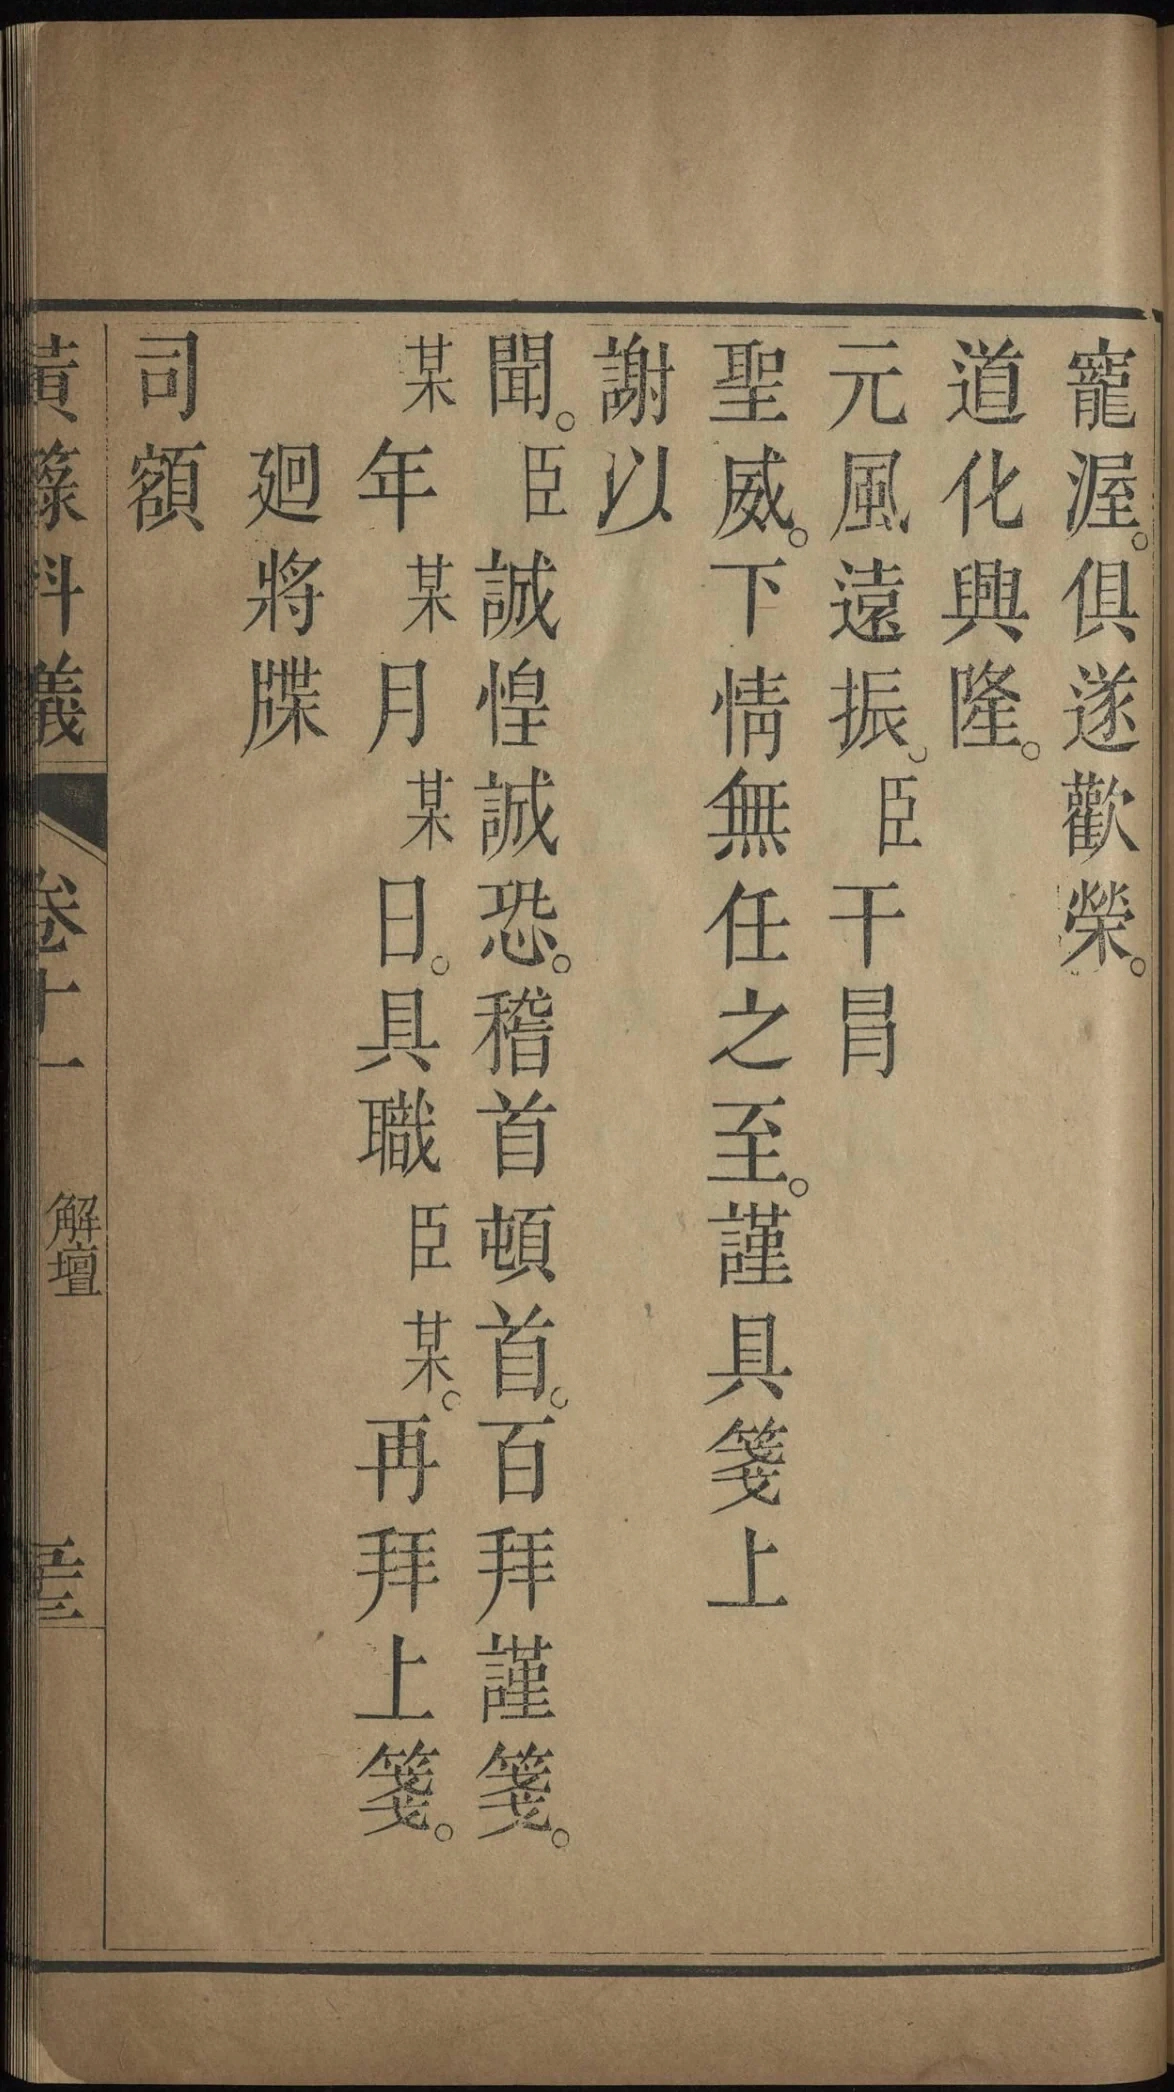 寵渥。俱遂歡榮。
道化興隆。
元風遠振。臣干冐
聖威。下情無任之至。謹具箋上
謝以
聞。臣誠惶誠恐。稽首頓首。百拜謹箋。
某年某月某日。具職臣某。再拜上箋。
廻將牒
司額
黃籙科儀 卷十一 解壇